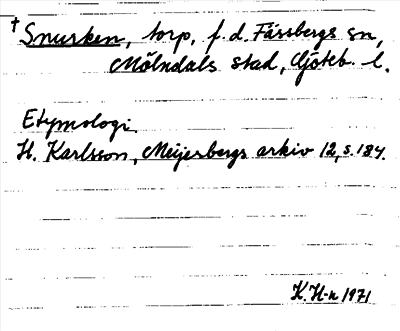 † Snurken, torp, f.d. Fässbergs sn,
Mölndals stad, Göteb. l.
Etymologi.
H. Karlsson, Meijerbergs arkiv 12, s. 184.
K. H-n 1971